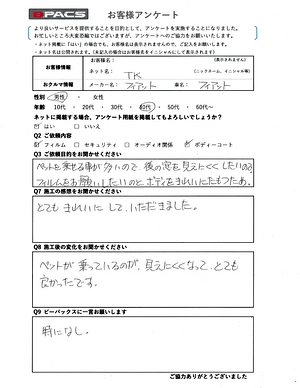 BPACS お客様アンケート
より良いサービスを提供することを目的として、アンケートを実施することになりました。
お忙しいところ大変恐縮ではございますが、アンケートへのご協力をお願いいたします。
・ネット掲載に「はい」の場合でも、お客様名は表示されませんので、ご記入をお願いします。
・ネット名は公開されます。(未記入の場合はお客様名をイニシャルにして表示されます)
お客様情報
お客様名: (表示されません)
ネット名: TK (ニックネーム、イニシャル等)
おクルマ情報 メーカー名: フィアット 車名: フィアット
性別 男性 ・ 女性
年齢 10代 ・ 20代 ・ 30代 ・ 40代 ・ 50代 ・ 60代～
ネットに掲載する場合、アンケート用紙を掲載してもよろしいでしょうか?
はい □ いいえ
Q2 ご依頼内容
フィルム □ セキュリティー □ オーディオ関係 ボディーコート
Q3 ご依頼目的をお聞かせください
ペットを乗せる事が多いので、後の窓を見えにくくしたいので
フィルムをお願いしたいのと、ボディをきれいにたもつため。
Q7 施工の感想をお聞かせください
とてもきれいにして、いただきました。
Q8 施工後の変化をお聞かせください
ペットが乗っているのが、見えにくくなって、とても
良かったです。
Q9 ビーパックスに一言お願いします
特になし。
ご協力ありがとうございました